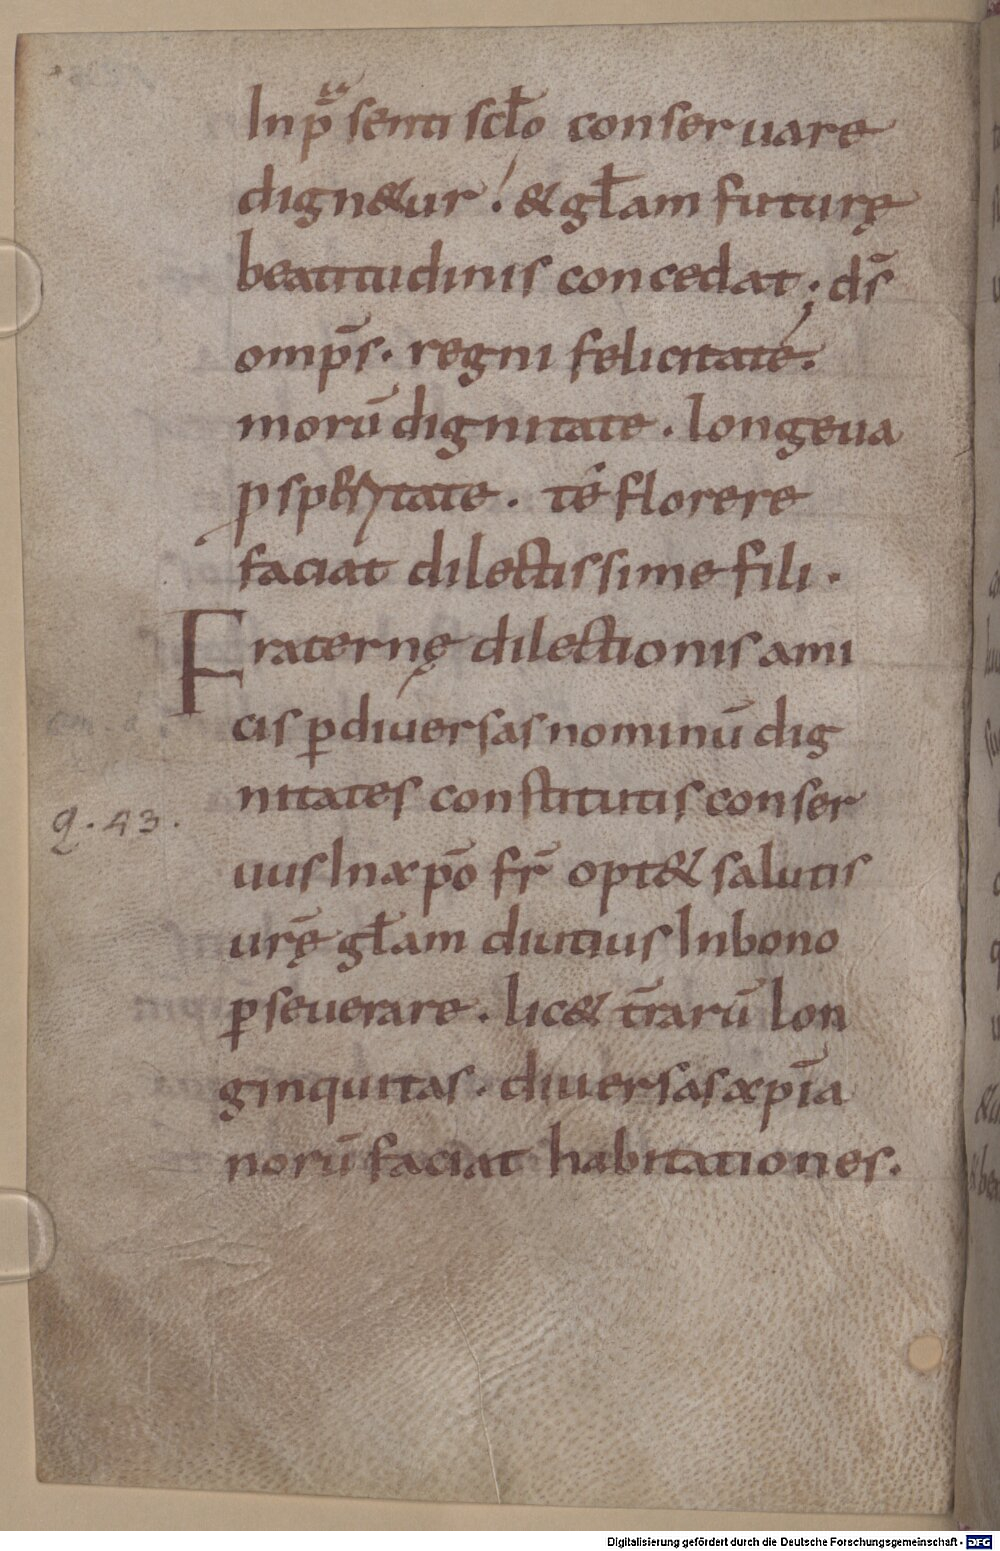 In p̄senti scƚo conseruare
dign&ur. & gƚam futurę
beatitudinis concedat; ds̄
omp̄s. regni felicitate.
morū dignitate. longeua
ꝓsperitate. te floręre
faciat dilectissime fili.
Fraternę dilectionis ami
cis ꝑ diuersas nominū dig
nitates constitutis conser
uus In xp̄o fr̄ opt& salutis
ur̄ę gƚam diutius In bono
ꝑseuerare. lic& tr̄arū lon
ginquitas. diuersas xp̄ia
norū faciat habitationes.
q. 43.
Digitalisierung gefördert durch die Deutsche Forschungsgemeinschaft - DFG